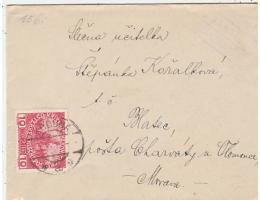 Slečna učitelka
Štěpánka Kořálková,
t. č.
Blatec,
pošta Charváty u Olomouce,
- Morava -
10 10